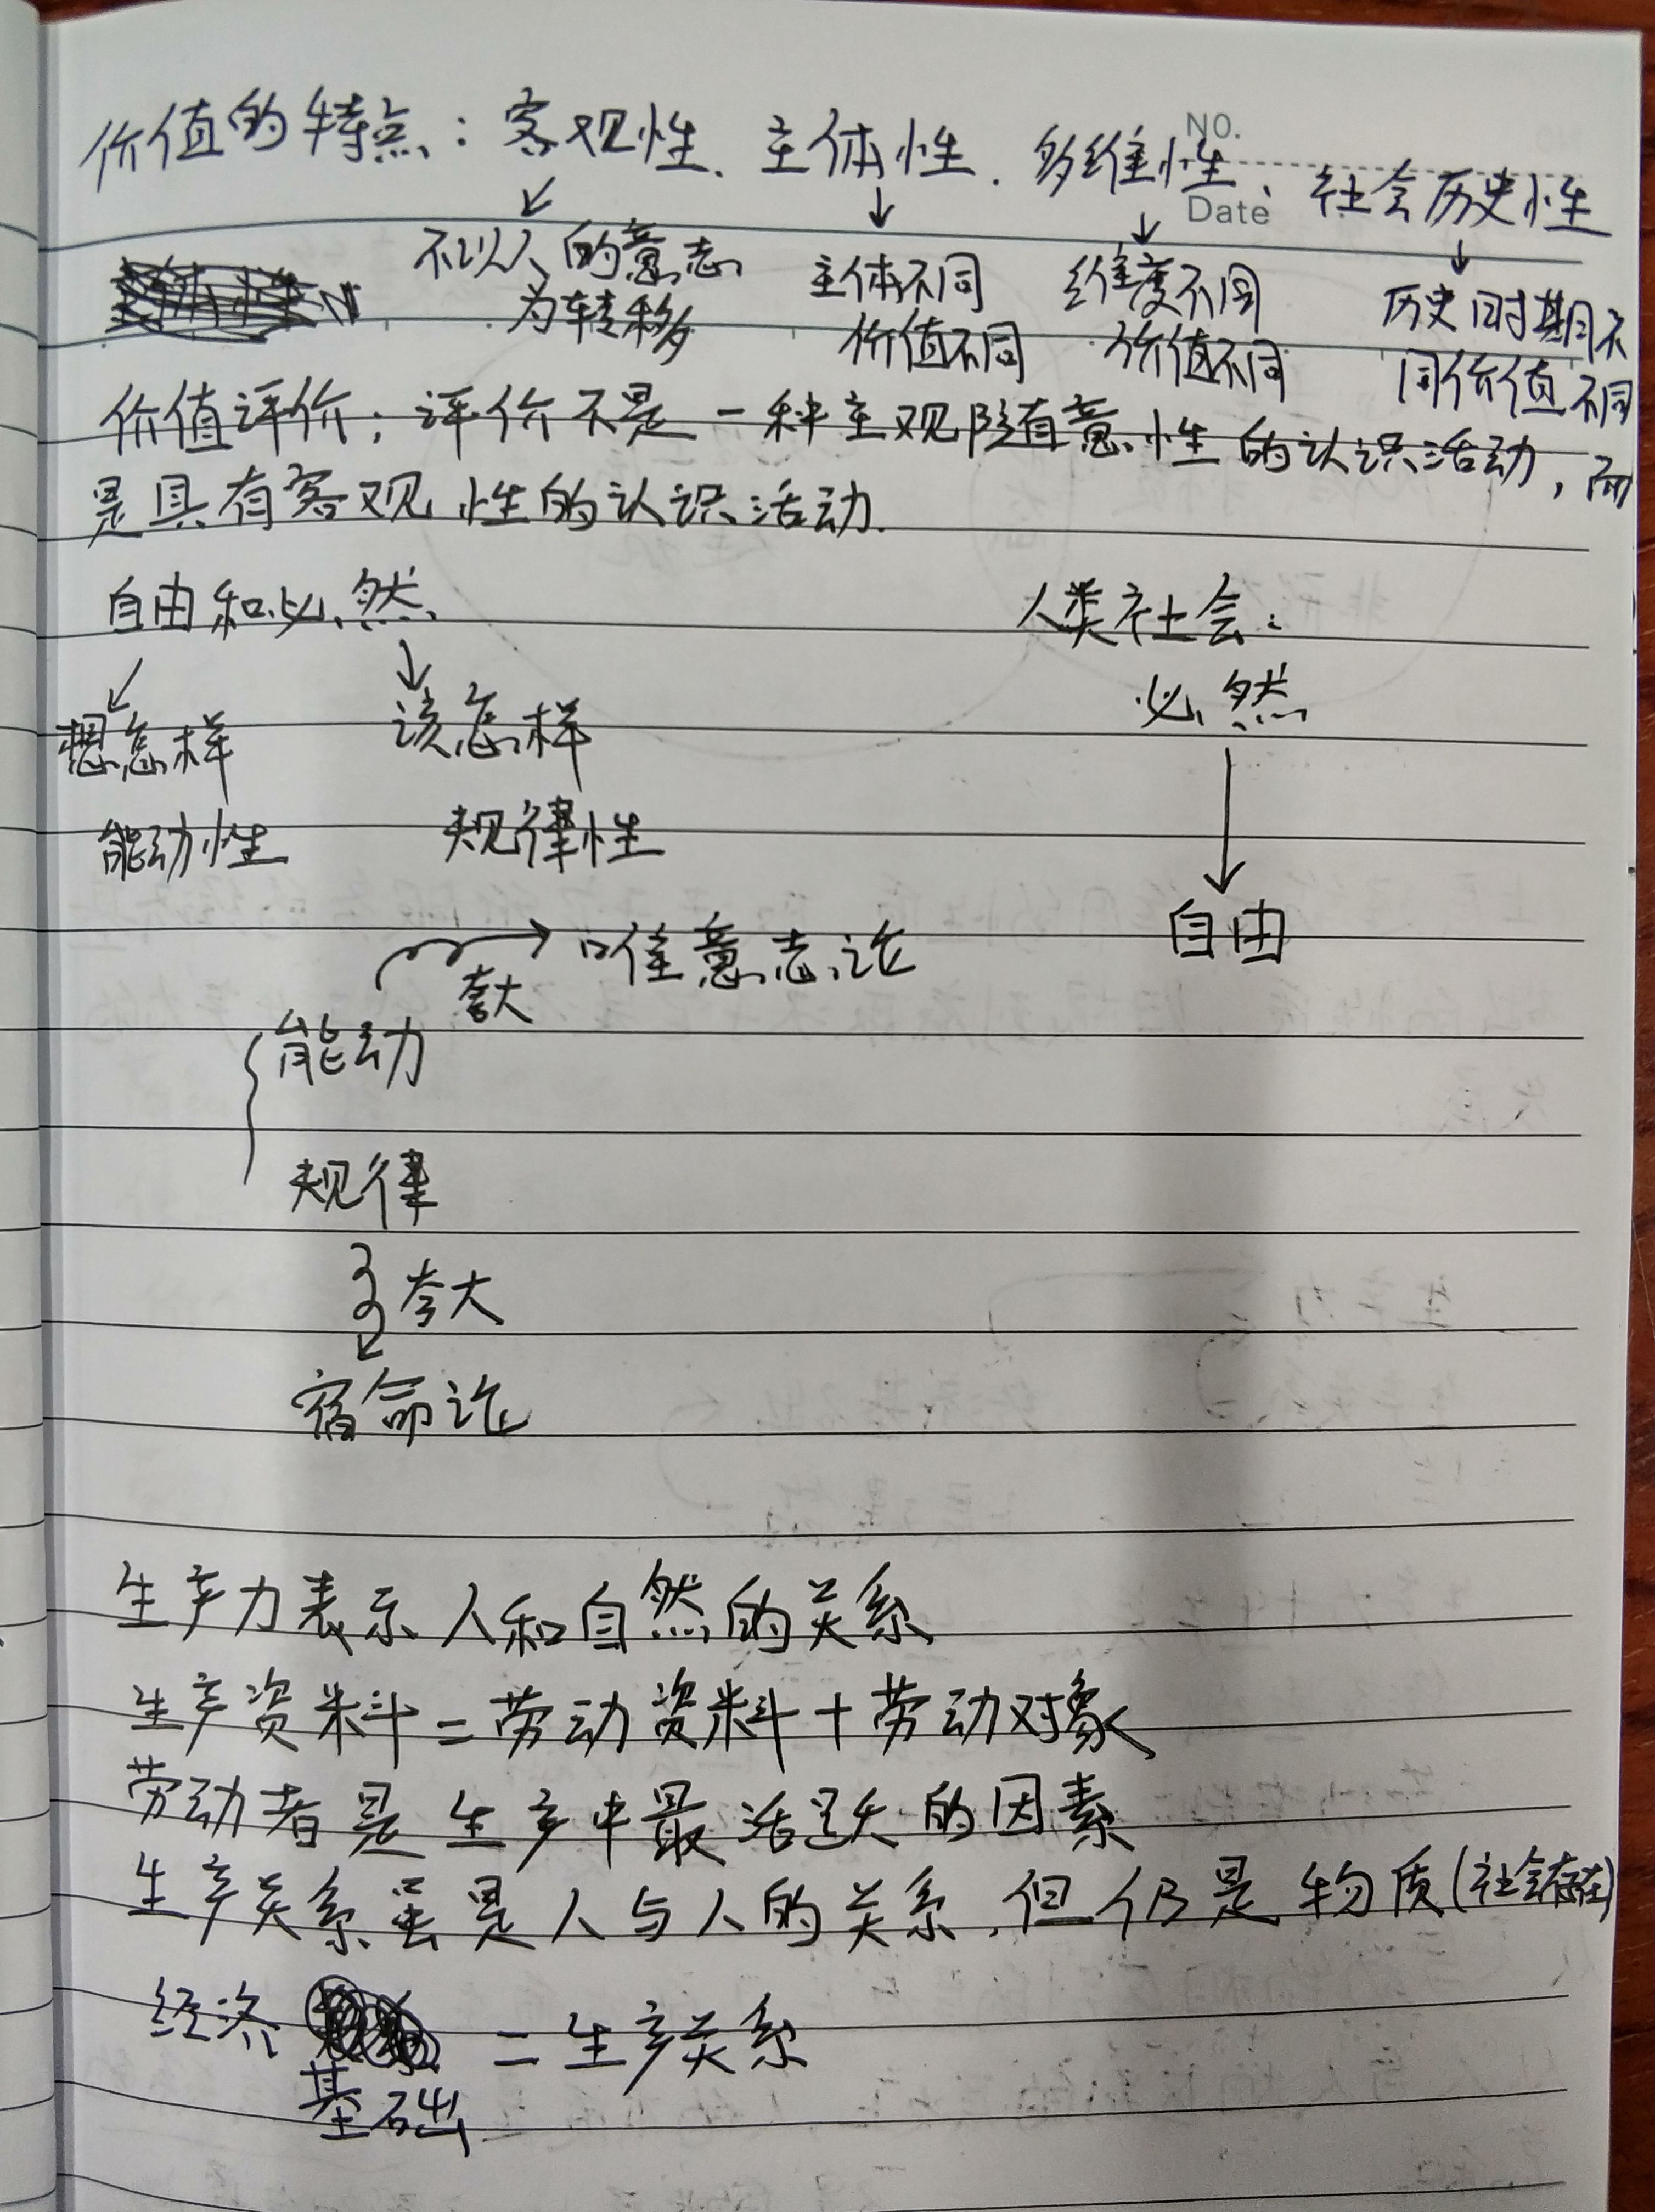 NO.
Date
价值的特点：客观性、主体性、多维性、社会历史性
不以人的意志为转移
主体不同价值不同
维度不同价值不同
历史时期不同价值不同
价值评价：评价不是一种主观随意性的认识活动，而
是具有客观性的认识活动.
自由和必然
想怎样 该怎样
能动性 规律性
人类社会：
必然
自由
夸大 唯意志论
能动
规律
夸大
宿命论
生产力表示人和自然的关系
生产资料=劳动资料+劳动对象
劳动者是生产中最活跃的因素
生产关系虽是人与人的关系，但仍是物质(社会存在)
经济基础=生产关系